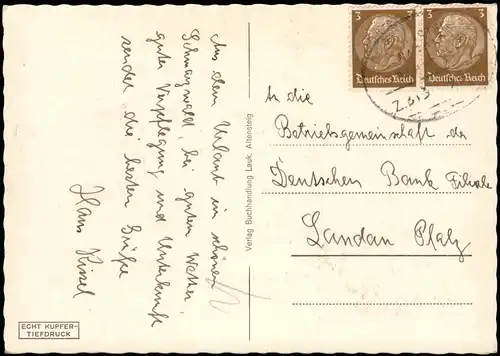 Aus dem Urlaub im schönen
Schwarzwald, bei gutem Wetter
guter Verpflegung und Unterkunft
sendet die besten Grüße
Hans Kissel
ECHT KUPFER-
TIEFDRUCK
Verlag Buchhandlung Lauk, Altensteig
3 3
Deutsches Reich Deutsches Reich
An die
Betriebsgemeinschaft der
Deutschen Bank Filiale
Landau Pfalz